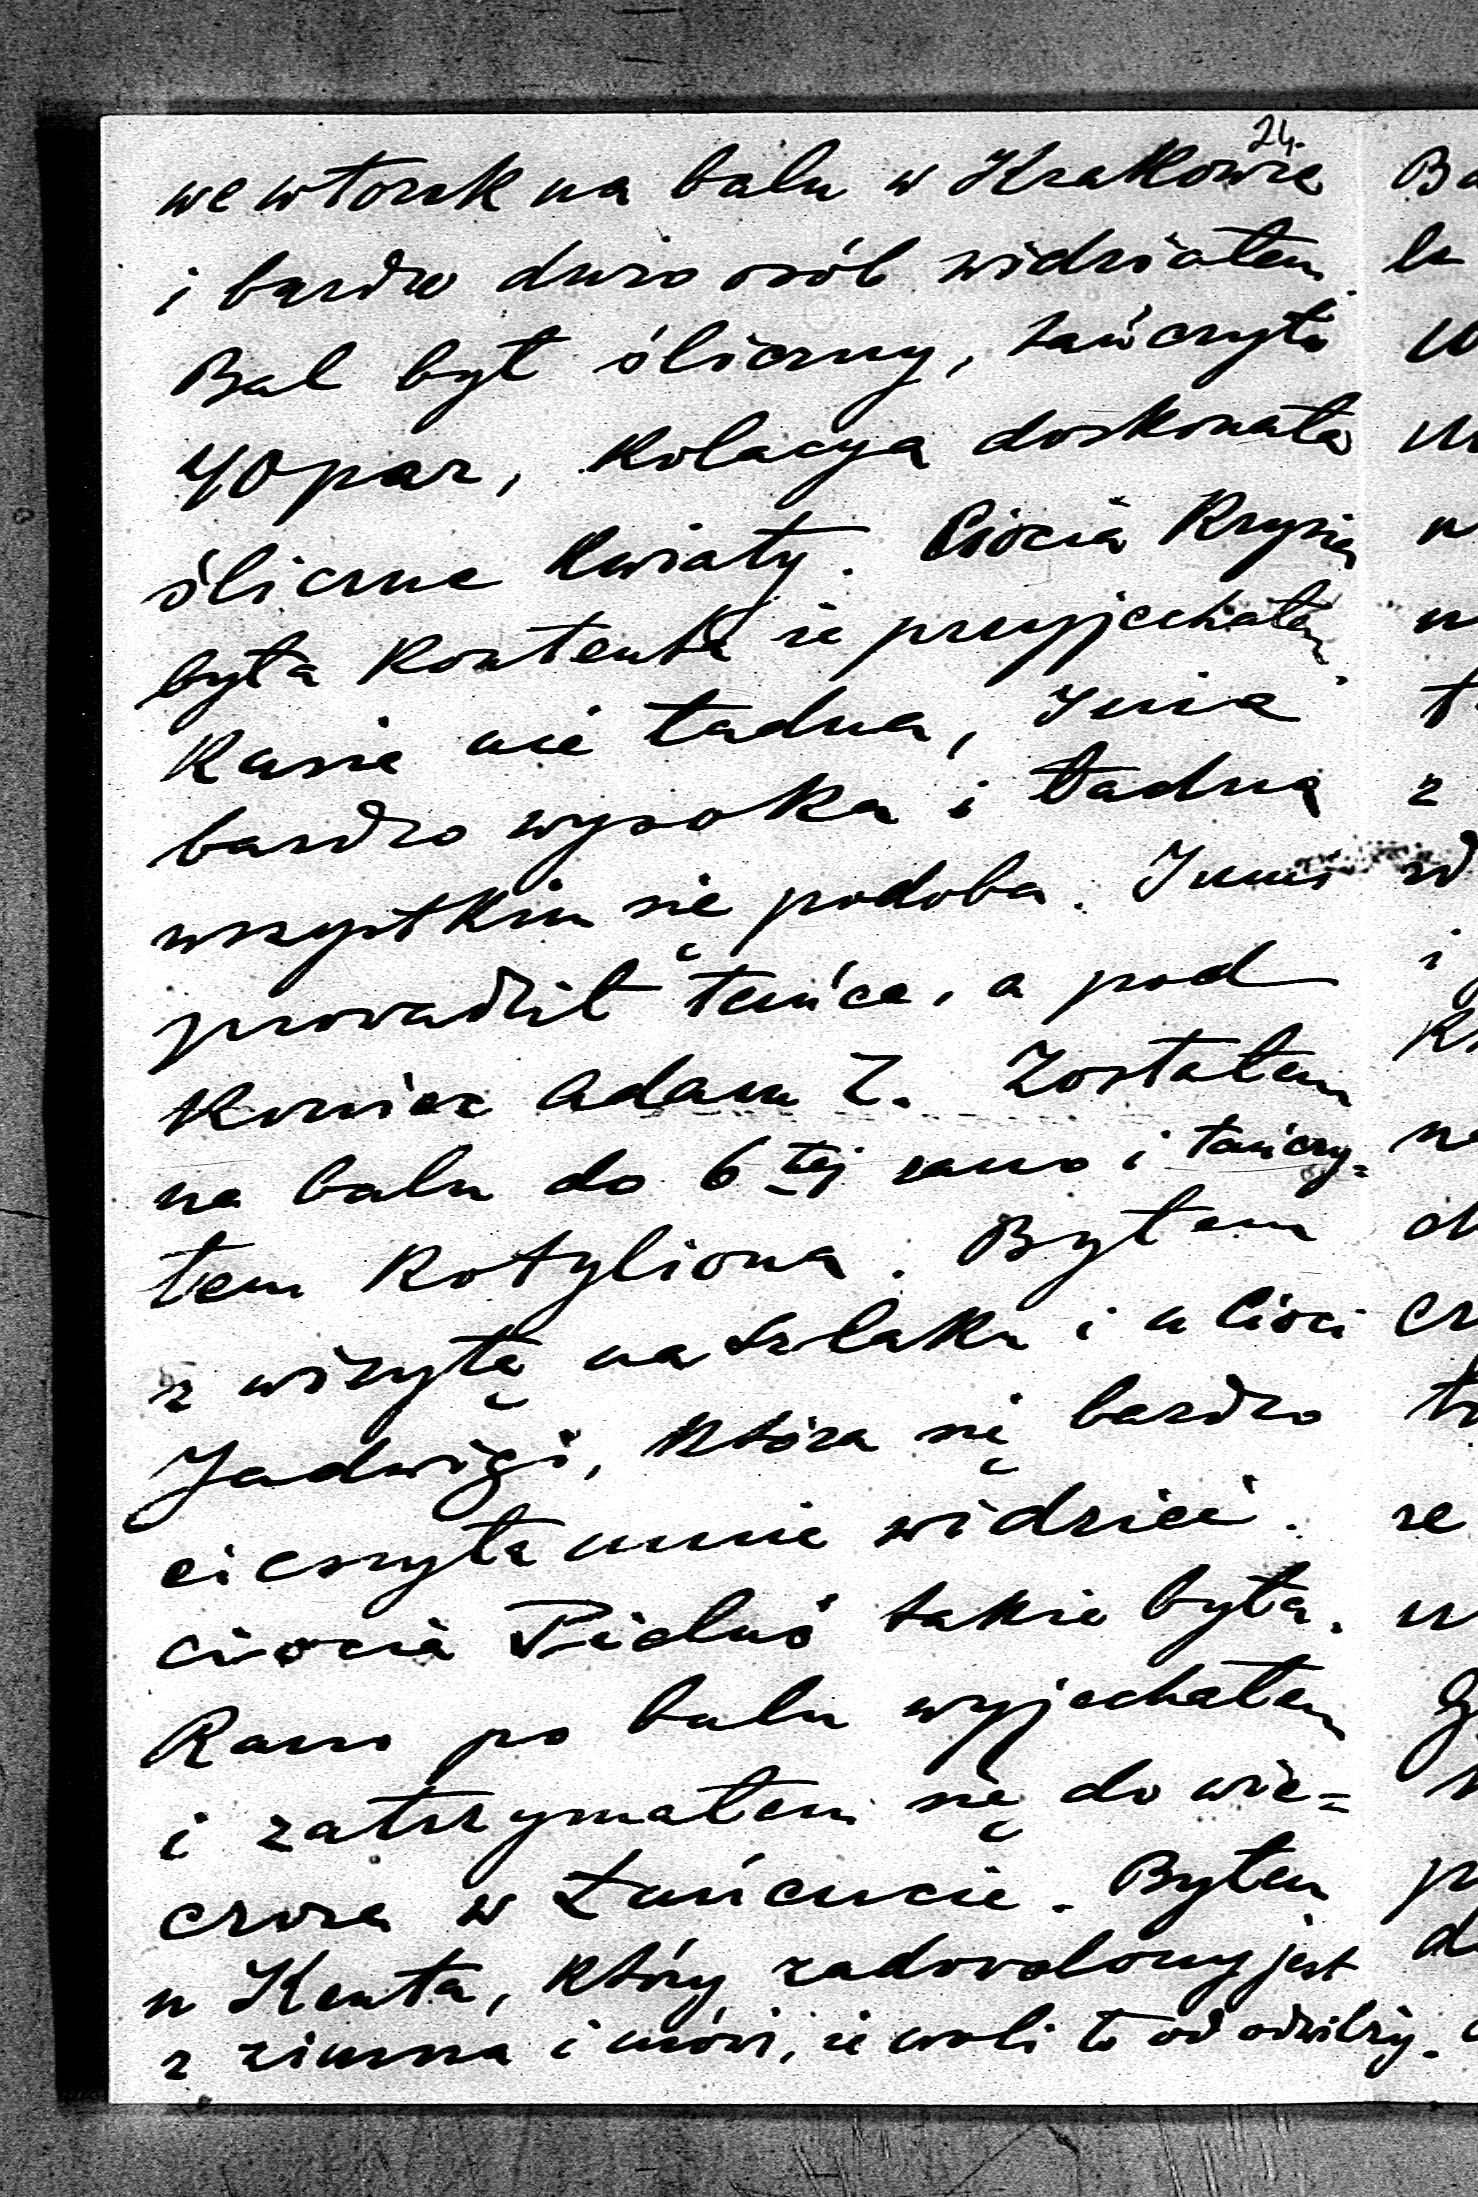 24.
we wtorek na balu w Krakowie
i bardzo dużo osób widziałem.
Bal był śliczny, tańczyło
40 par, kolacya doskonała
śliczne kwiaty. Ciocia Krysia
była kontenta że przyjechałem.
Kasia nie ładna,
bardzo wysoka i ładna
wszystkim się podoba.
prowadził tańce, a pod
koniec Adam Z. Zostałem
na balu do 6tej rano i tańczy=
łem kotyliona. Byłem
z wizytą na Szlaku i u Cioci
Jadwigi, która się bardzo
cieszyła mnie widzieć.
ciocia także była.
Rano po balu wyjechałem
i zatrzymałem się do wie=
czora w Łańcucie. Byłem
u Kenta, który zadowolony jest
z zimna i mówi, że woli to od odwilży.